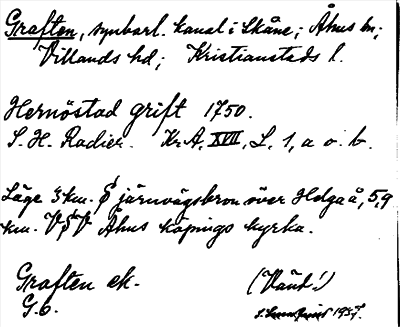 Graften, synbarl. kanal i Skåne; Åhus sn;
Villands hd; Kristianstads l.
Hernöstad grift 1750.
S. H. Radier. Kr. A. XVII, L. 1, a o. b.
Läge 3 km. S järnvägsbron över Helgaå, 5,9
km. VSV Åhus köpings kyrka.
Graften ek.
G. 6.
1937.